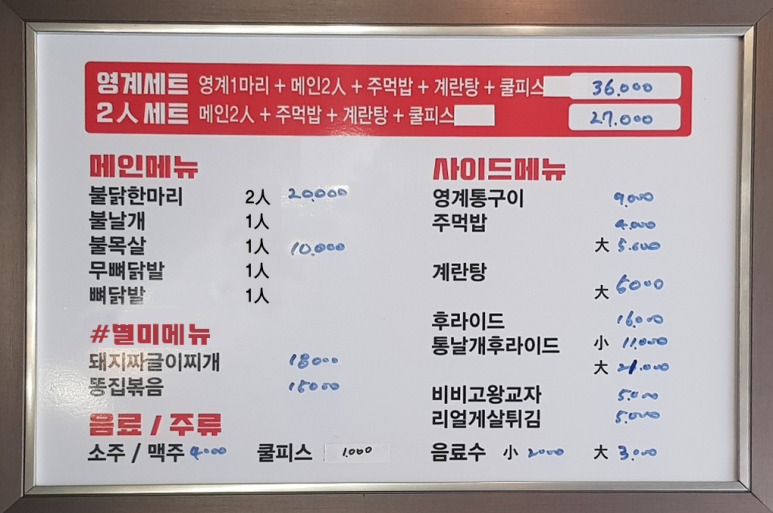 영계세트 영계1마리 + 메인2人 + 주먹밥 + 계란탕 + 쿨피스 36.000
2人세트 메인2人 + 주먹밥 + 계란탕 + 쿨피스 27.000
메인메뉴
불닭한마리 2人 20.000
불날개 1人
불목살 1人 10.000
무뼈닭발 1人
뼈닭발 1人
#별미메뉴
돼지짜글이찌개 18000
똥집볶음 15000
음료 / 주류
소주 / 맥주 4000 쿨피스 1.000
사이드메뉴
영계통구이 9.000
주먹밥 4.000
大 5.000
계란탕
大 5000
후라이드 16.000
통날개후라이드 小 11.000
大 21.000
비비고왕교자 5.000
리얼게살튀김 5.000
음료수 小 2000 大 3.000